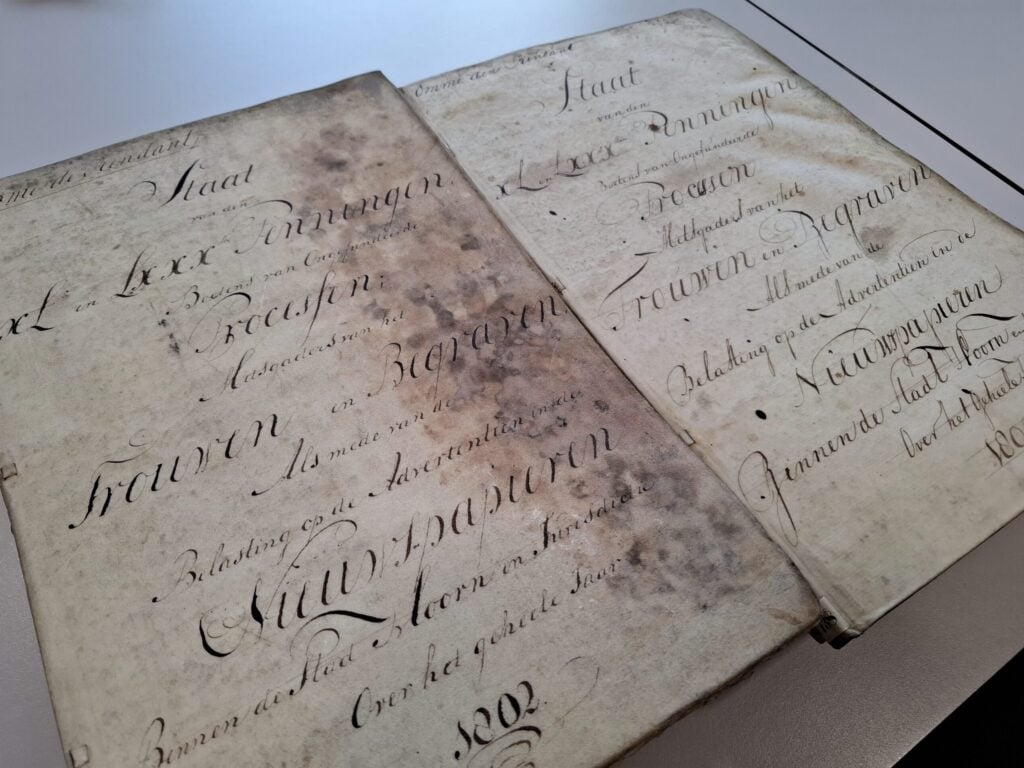 de Rendant
Staat
van den
XL en Lxxx Penningen,
Boetens van Ongefundeerde
Processen;
Mitsgaders van het
Trouwen en Begraven,
Als mede van de
Belasting op de Advertentien in de
Nieuwspapieren
Binnen de Stadt Hoorn en Jurisdictie
Over het geheele Jaar
1802.
Omme den Rendant
Staat
van den
XL en Lxxx Penningen
Boetens van Ongefundeerde
Processen
Mitsgaders van het
Trouwen en Begraven
Als mede van de
Belasting op de Advertentien in de
Nieuwspapieren
Binnen de Stadt Hoorn en
Over het Geheele
180